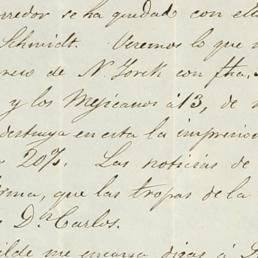 rredor se ha quedad con ell
Schmidt. Veremos lo que
de N. York con fha.
y los Mejicanos á 13, de
destruya en esta la impresio
20%. Las noticias de
rma, que las tropas de la
Dn Carlos.
me encarga digas á